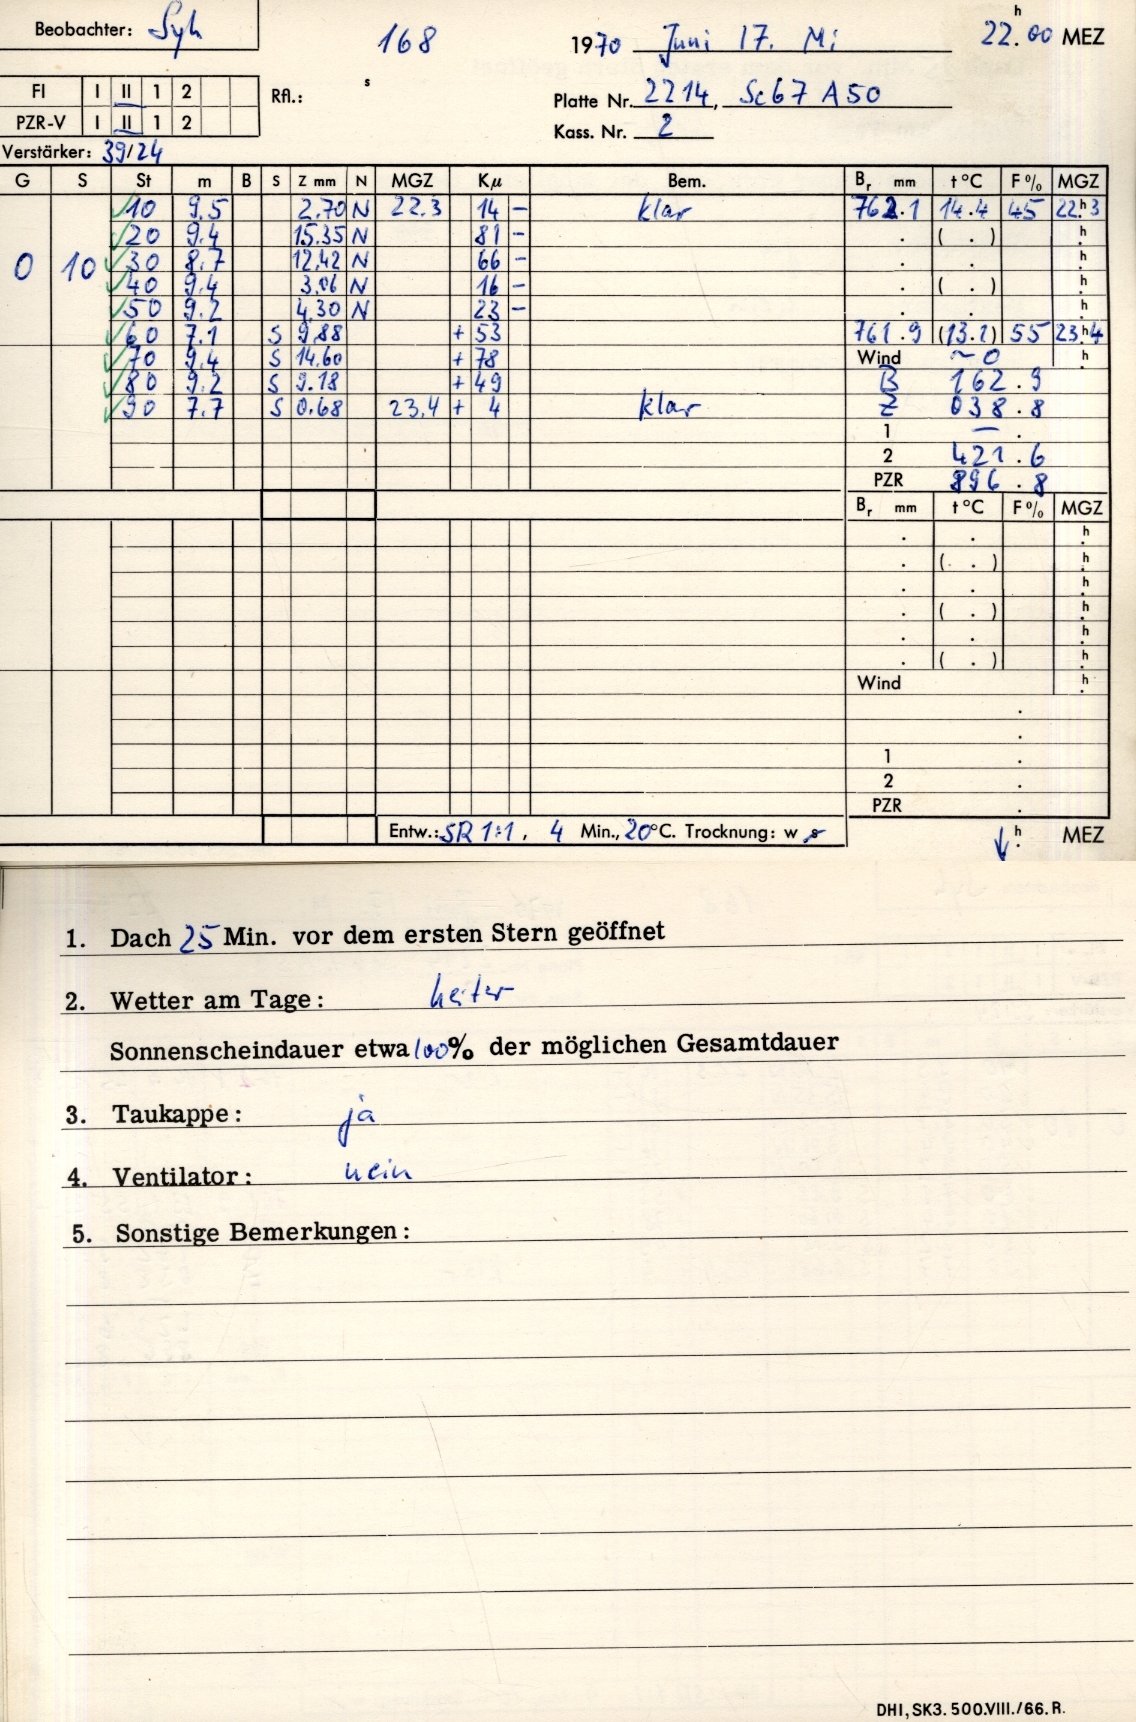 Beobachter: Syh 168 1970 Juni 17. Mi 22.00 h MEZ
FI I II 1 2 Rfl.: s Platte Nr. 2214, Sc67 A50
PZR-V I II 1 2 Kass. Nr. 2
Verstärker: 39/24
G S St m B S Z mm N MGZ Kμ Bem. Br mm t °C F % MGZ
10 9.5 2.70 N 22.3 14 – klar 762.1 14.4 45 22.h3
20 9.4 15.35 N 81 – . ( . ) .h
0 10 30 8.7 12.42 N 66 – . . .h
40 9.4 3.06 N 16 – . ( . ) .h
50 9.2 4.30 N 23 – . . .h
60 7.1 S 9.88 + 53 761.9 (13.2) 55 23.h4
70 9.4 S 14.60 + 78 Wind ~0 .h
80 9.2 S 9.18 + 49 B 162.9
90 7.7 S 0.68 23.4 + 4 klar Z 038.8
1 — .
2 421.6
PZR 896.8
Br mm t °C F % MGZ
. . .h
. ( . ) .h
. . .h
. ( . ) .h
. . .h
. ( . ) .h
Wind .h
.
.
1 .
2 .
PZR .
Entw.: SR 1:1, 4 Min., 20°C. Trocknung: w s ↓ .h MEZ
1. Dach 25 Min. vor dem ersten Stern geöffnet
2. Wetter am Tage: heiter
Sonnenscheindauer etwa 100% der möglichen Gesamtdauer
3. Taukappe: ja
4. Ventilator: nein
5. Sonstige Bemerkungen:
DHI, SK3. 500.VIII./66. R.